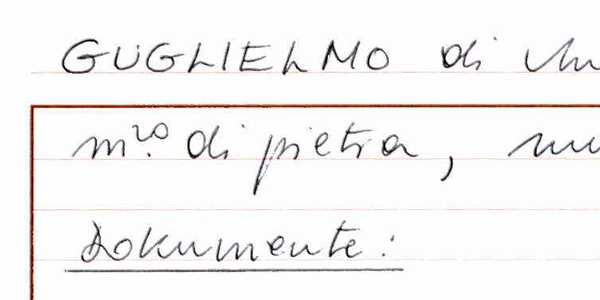 GUGLIELMO di
m.ro di pietra,
Dokumente: